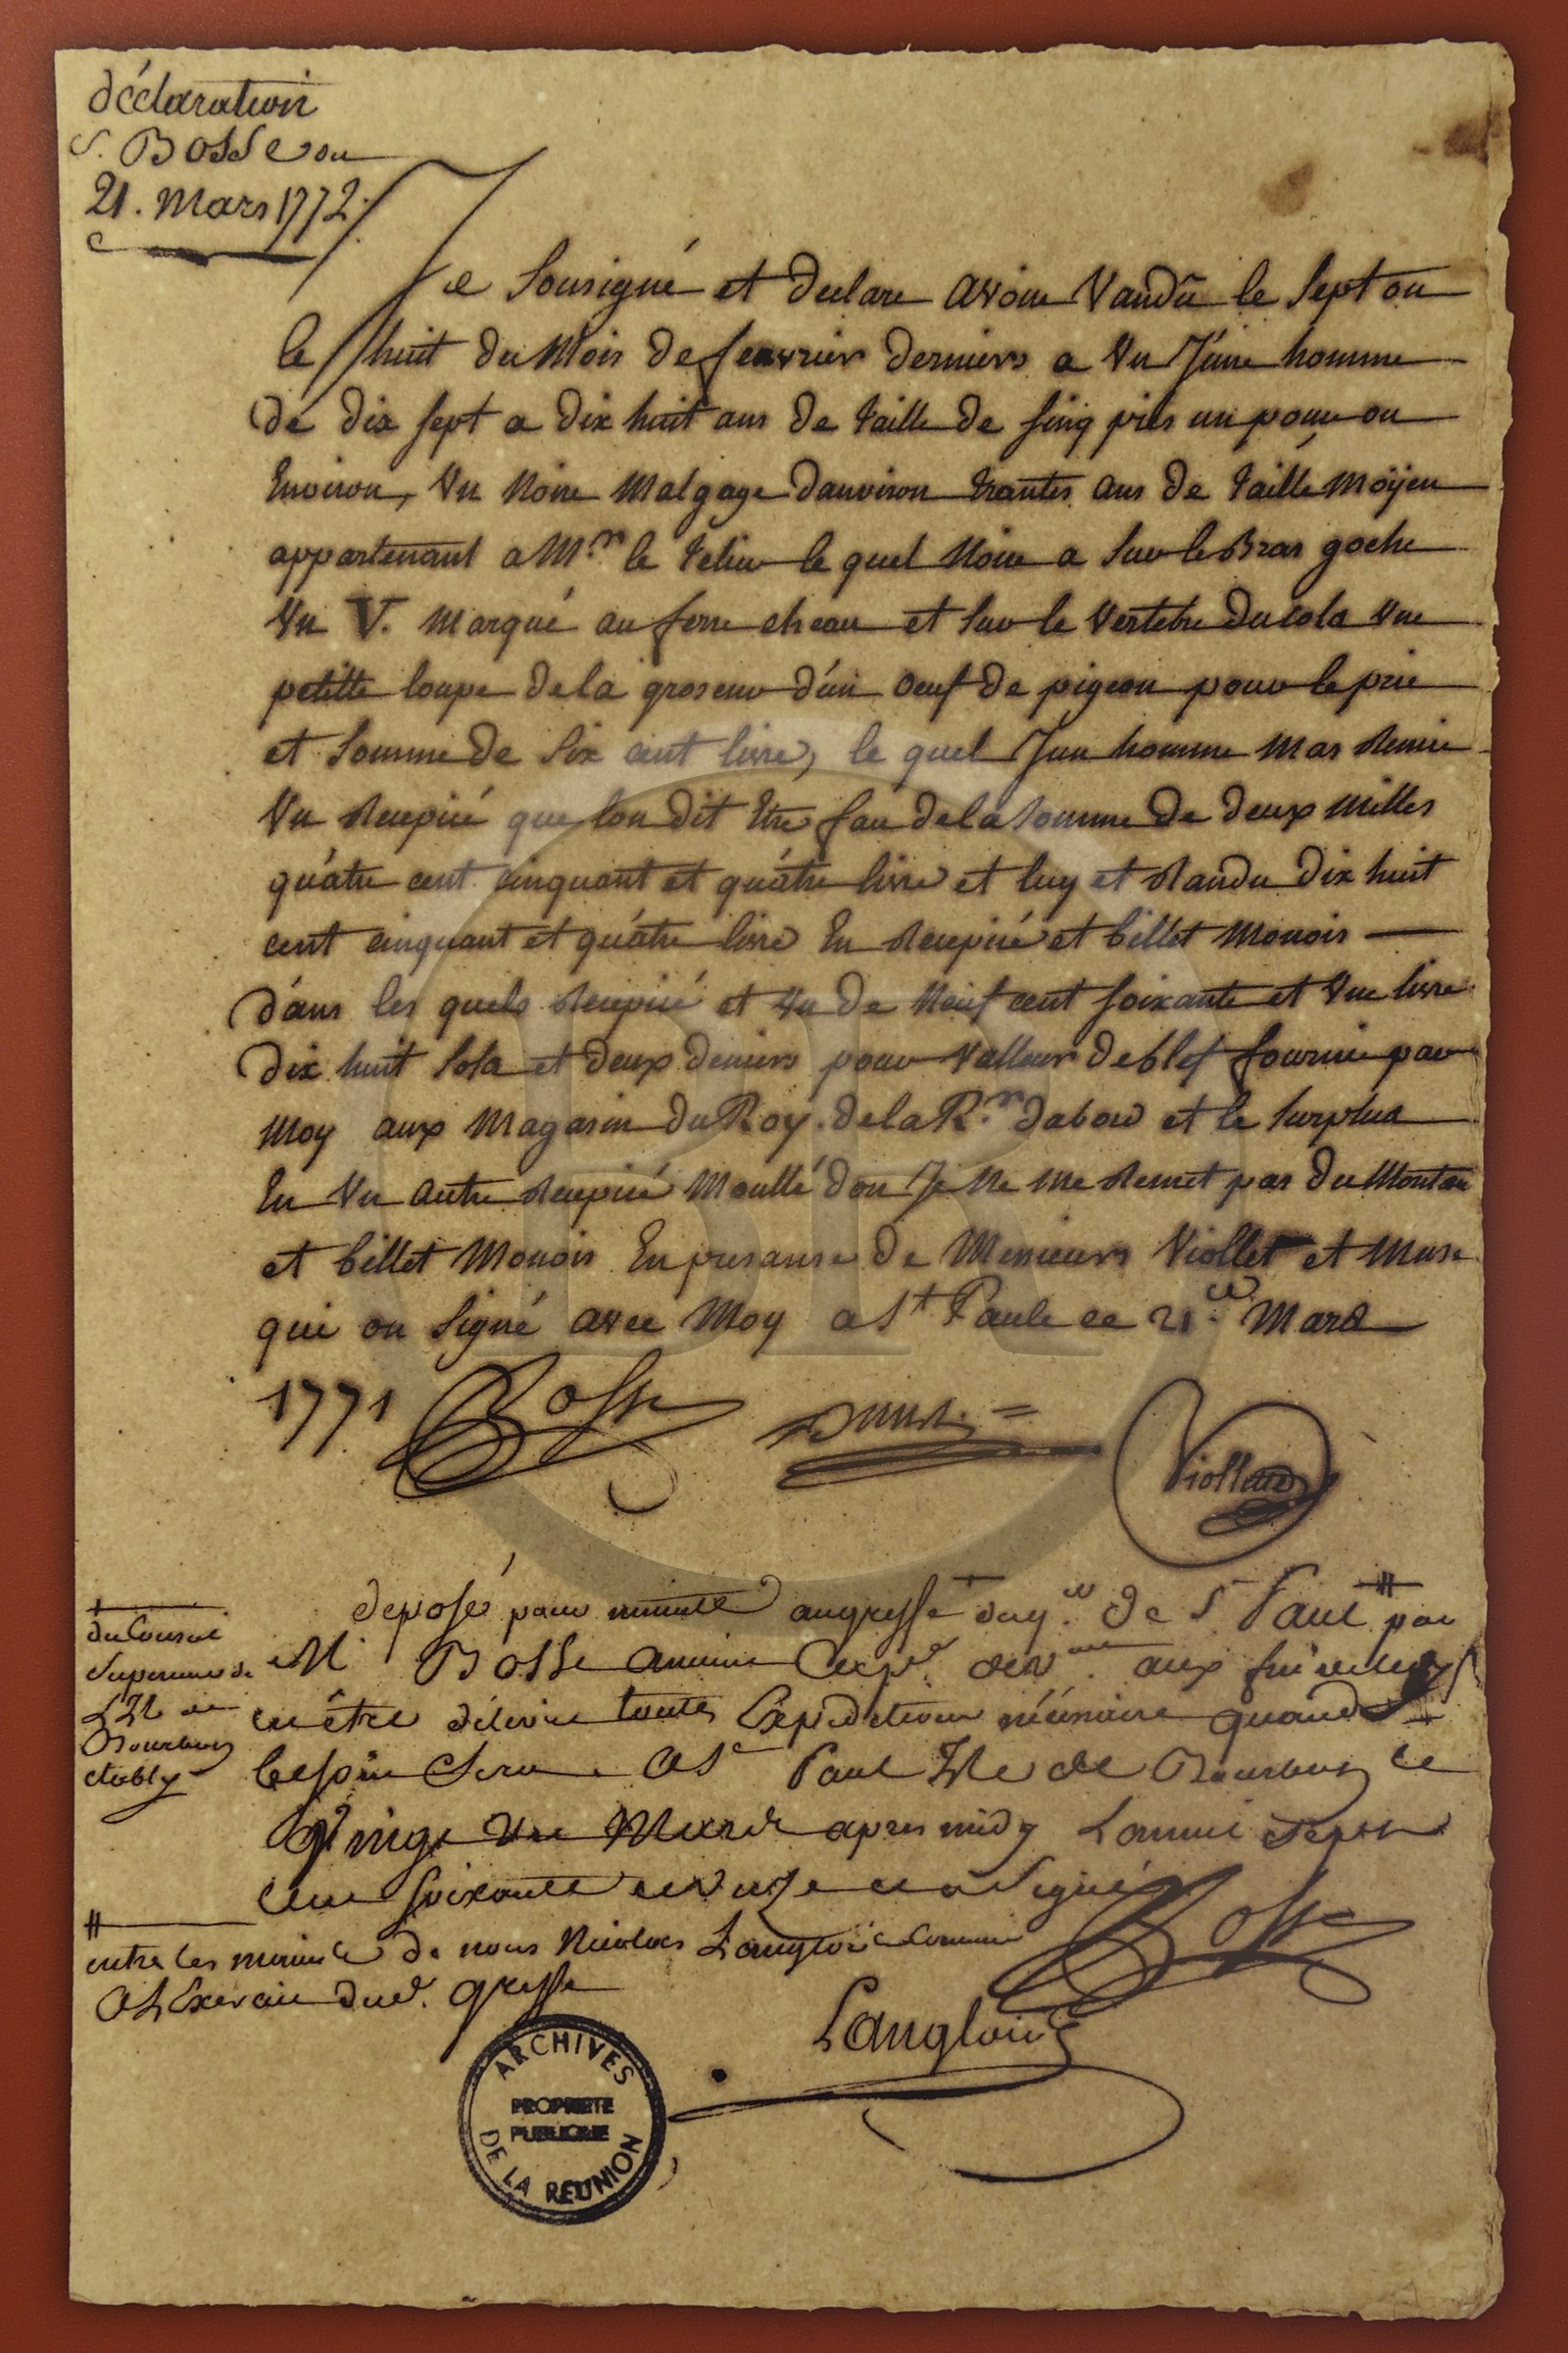 déclaration
S. Bosse ou
21. Mars 1772.
Je Sousigné et declare avoire Vandû le Sept ou
le huit du Mois de feavrier derniers a Vn Jéune homme
de dix sept a dix huit ans de taille de sinq piés un pouce ou
Environ, Vn Noire Malgage danviron trantes ans de taille Moÿen
appartenant a Mr. le telier le quel Noire a Sur le Bras goche
Vn V. Marqué au ferre cheau et Sur le Vertebre du cola Vne
petitte loupe de la groseur d'un oeuf de pigeon pour le prie
et Somme de Six cent livre, le quel Jun homme Mas Remie
Vn Recepicé que lon dit Etre fau de la Somme de deux Milles
quátre cent cinquant et quátre livre et luy et Randu dix huit
cent cinquant et quátre livre En Recepicé et billet Monois
dáns les quels Recepicé et Vn de Neuf cent soixante et Vne livre
dix huit Sols et deux deniers pour Valleur de blef fournie par
Moy aux Magasin du Roy. de la Rre. dabor et le Surplus
En Vn autre Recepicé Moullé don Je Ne Me Remet pas du Montan
et billet Monois En presanse de Messieurs Viollet et Muse
qui on Signé avec Moy a St Paule ce 21. Mars
1771 Bosse
Viollet
deposé pour minutte au greffe du qer. de St Paul # par
Mr Bosse ancien aux fins
en être délivré toutes Expeditions nécéssaire quand
besoin Sera. a St Paul Isle de Bourbon ce
Vingt Vn Mars apres midy Lannée Sept
cent soixante et onze et a Signé
Bosse
du Conseil
Superieur de
L'Isle de
Bourbon
etably
#
entre les mains de nous Nicolas Langlois Commis
a L'Exercice dud. greffe
Langlois
ARCHIVES
PROPRIETE
PUBLIQUE
DE LA REUNION
BR